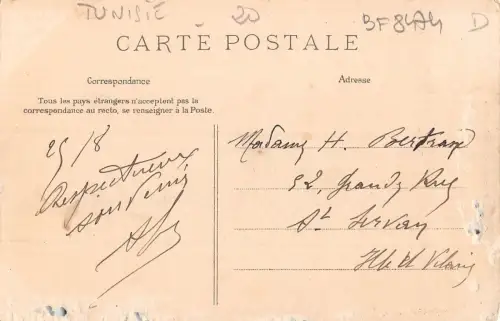 TUNISIE
20
BF 84A4
D
CARTE POSTALE
Correspondance
Adresse
Tous les pays étrangers n'acceptent pas la
correspondance au recto, se renseigner à la Poste.
25/8
Respectueux
souvenir
Madame H. Bertrand
52, Grande Rue
St Servan
Ille et Vilaine